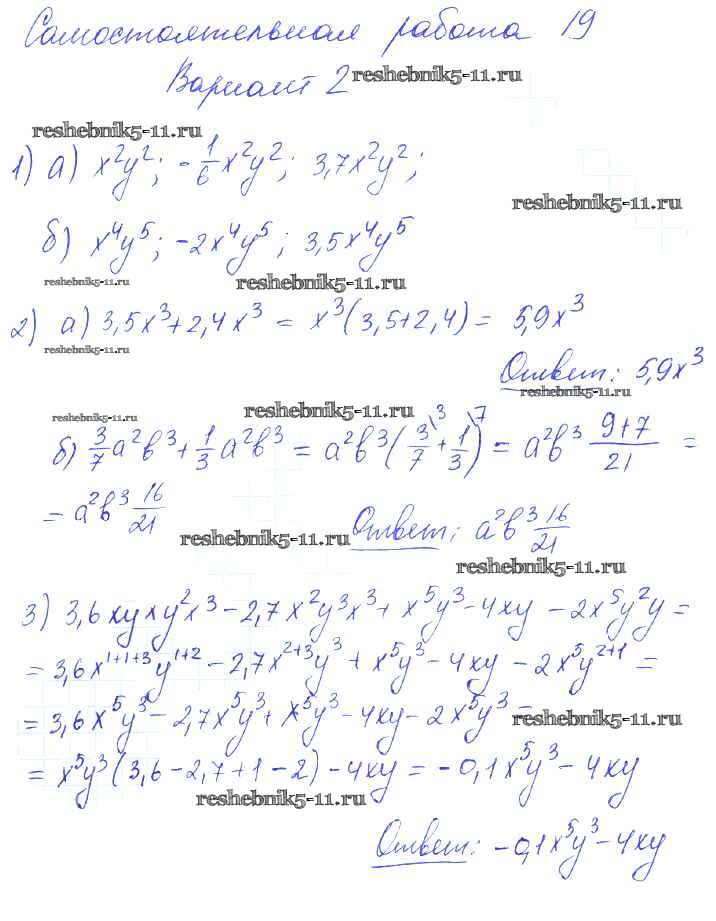 Самостоятельная работа 19
Вариант 2 reshebnik5-11.ru
reshebnik5-11.ru
1) а) x²y²; -1/6x²y²; 3,7x²y²;
reshebnik5-11.ru
б) x⁴y⁵; -2x⁴y⁵; 3,5x⁴y⁵
reshebnik5-11.ru reshebnik5-11.ru
2) а) 3,5x³+2,4x³ = x³(3,5+2,4) = 5,9x³
reshebnik5-11.ru
Ответ: 5,9x³
reshebnik5-11.ru
reshebnik5-11.ru reshebnik5-11.ru
б) 3/7a²b³ + 1/3a²b³ = a²b³(3/7\³ + 1/3\⁷) = a²b³ (9+7)/21 =
= a²b³ 16/21
Ответ: a²b³ 16/21
reshebnik5-11.ru reshebnik5-11.ru
3) 3,6xyxy²x³ - 2,7x²y³x³ + x⁵y³ - 4xy - 2x⁵y²y =
= 3,6x¹⁺¹⁺³y¹⁺² - 2,7x²⁺³y³ + x⁵y³ - 4xy - 2x⁵y²⁺¹ =
= 3,6x⁵y³ - 2,7x⁵y³ + x⁵y³ - 4xy - 2x⁵y³ =
reshebnik5-11.ru
= x⁵y³(3,6 - 2,7 + 1 - 2) - 4xy = -0,1x⁵y³ - 4xy
reshebnik5-11.ru
Ответ: -0,1x⁵y³ - 4xy